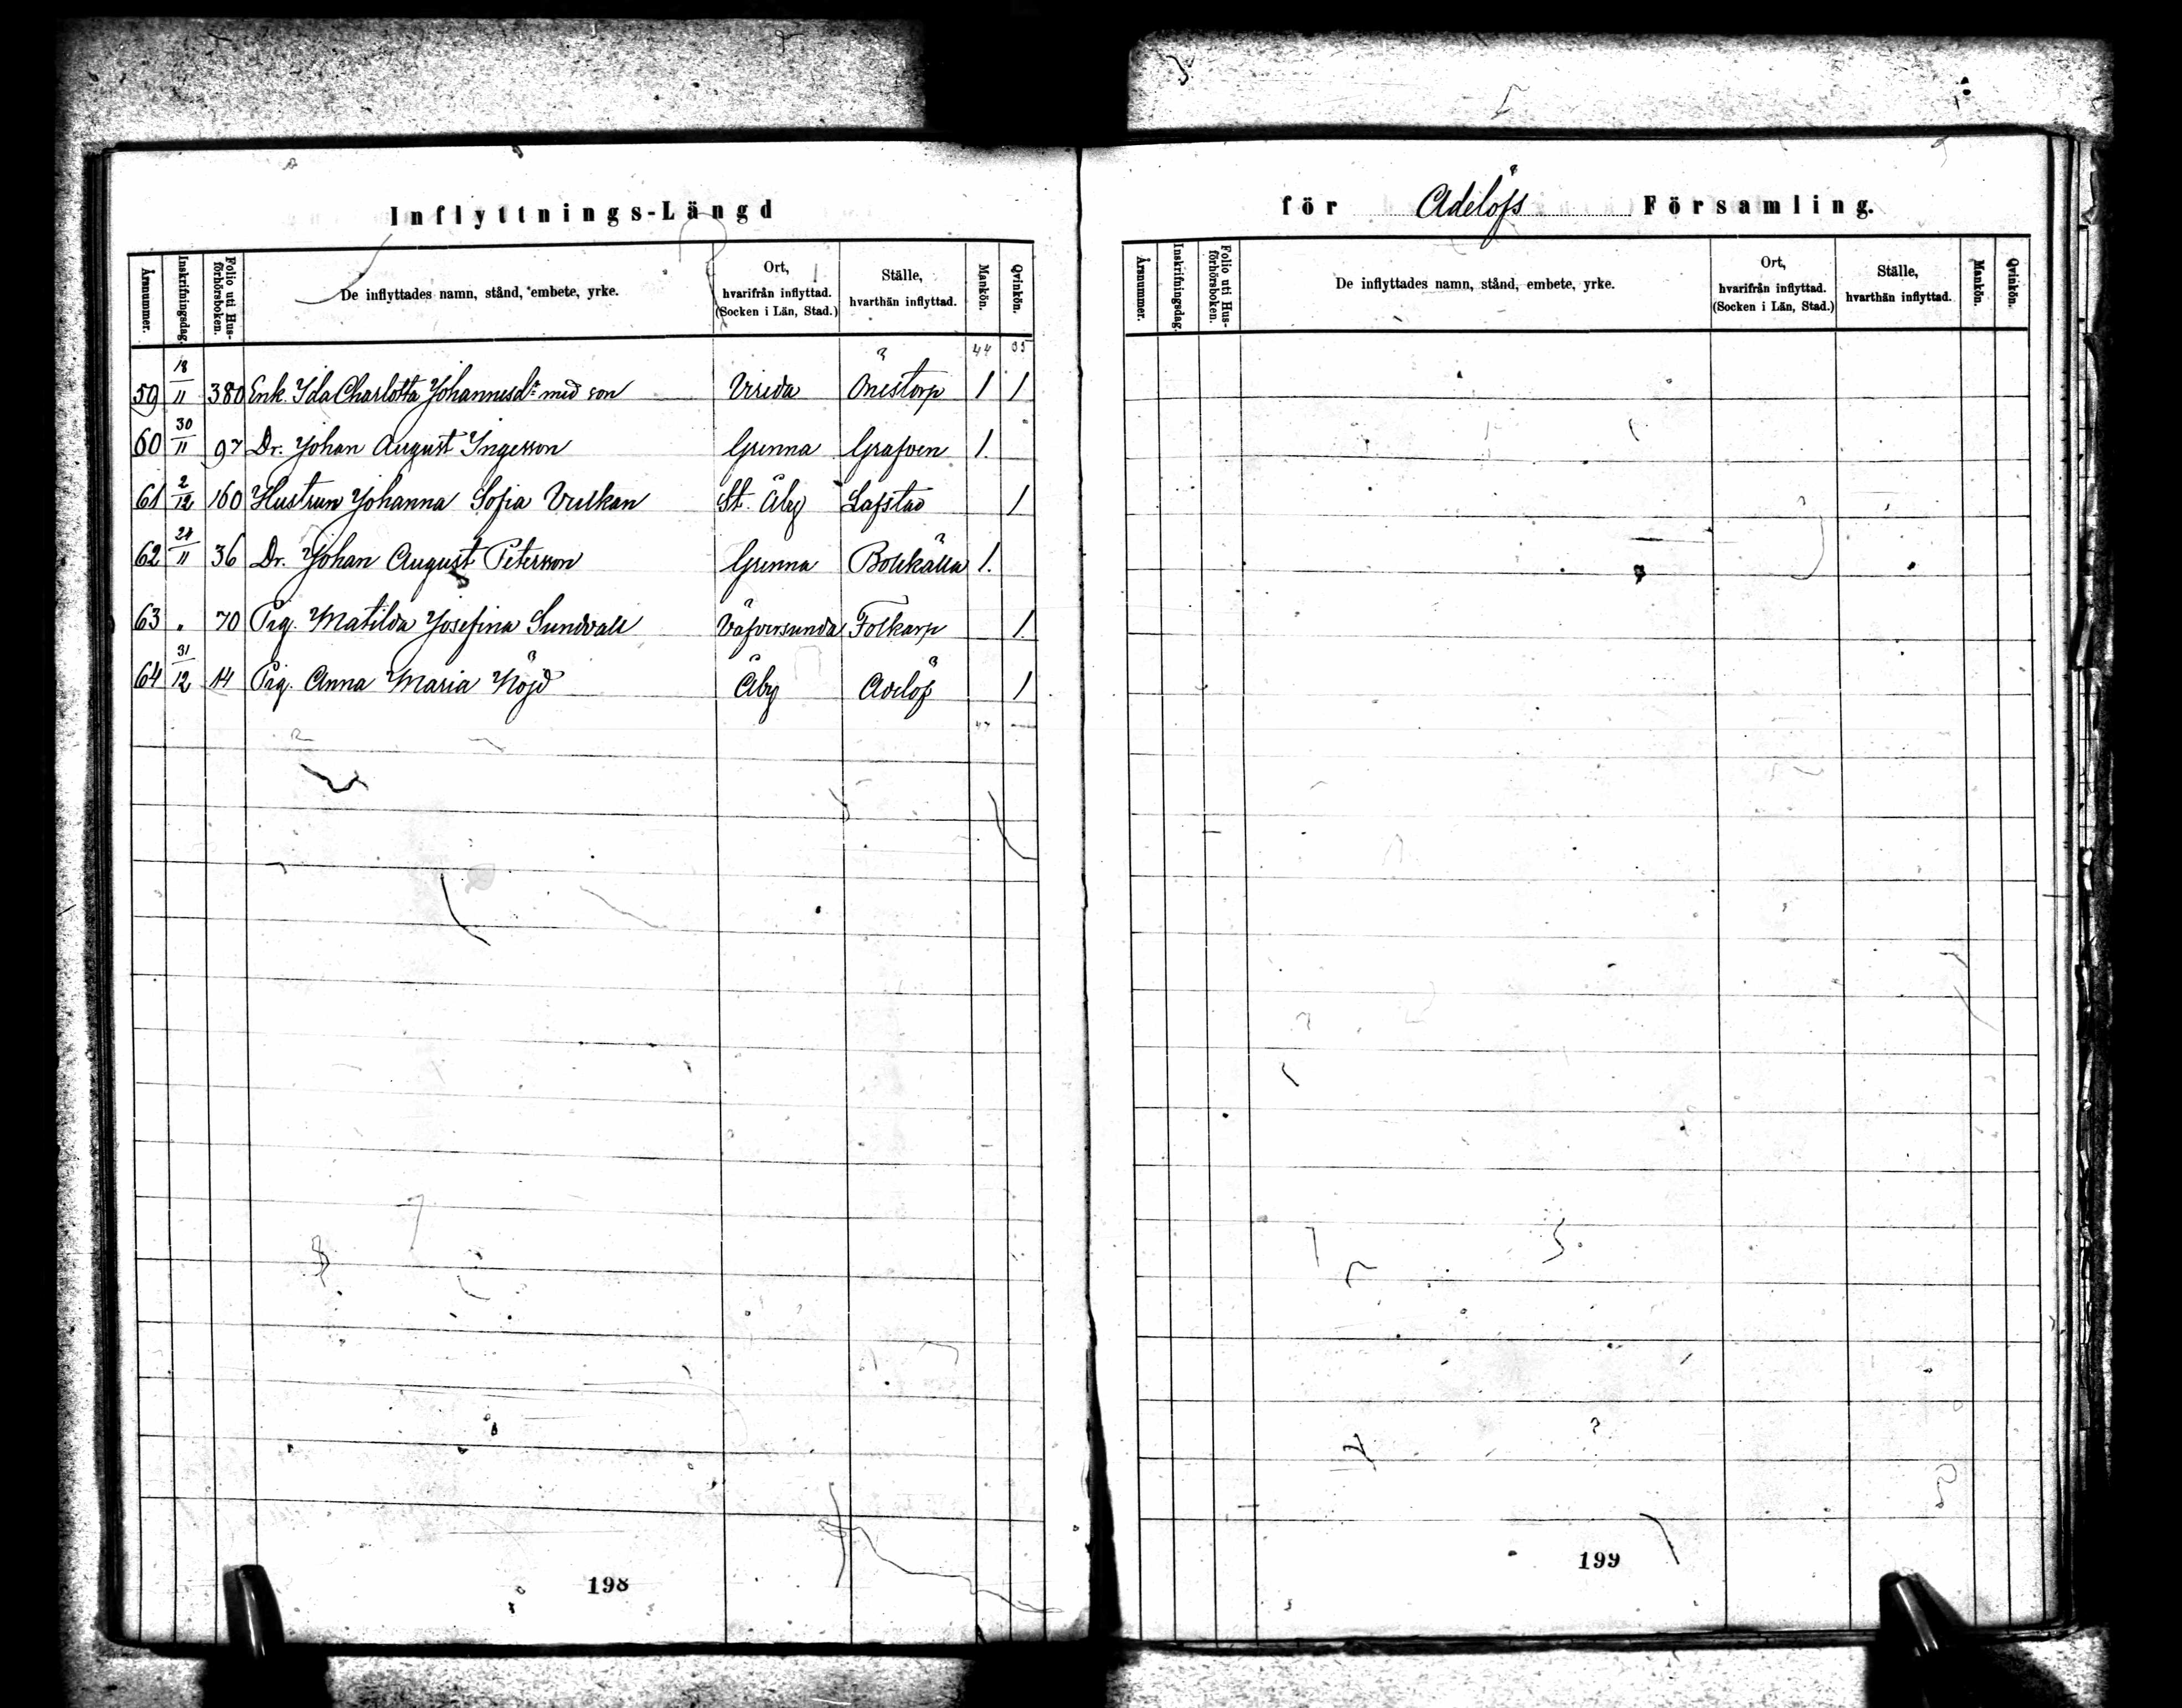 Inflyttnings-Längd
för Adelöfs Församling.
Årsnummer. Inskrifningsdag. Folio uti Husförhörsboken. De inflyttades namn, stånd, embete, yrke. Ort, hvarifrån inflyttad. (Socken i Län, Stad.) Ställe, hvarthän inflyttad. Mankön. Qvinkön.
44 35
59 18/11 380 Enk. Ida Charlotta Johannesdr med son Vireda Önestorp 1 1
60 30/11 97 Dr. Johan August Ingesson Grenna Grafven 1.
61 2/12 160 Hustrun Johanna Sofia Vulkan St. Åby Lafstad 1
62 24/11 36 Dr. Johan August Petersson Grenna Bolekälla 1.
63 " 70 Pig. Matilda Josefina Sundvall Väfversunda Folkarp 1.
64 31/12 14 Pig. Anna Maria Nöjd Åby Adelöf 1
47
198
Årsnummer. Inskrifningsdag. Folio uti Husförhörsboken. De inflyttades namn, stånd, embete, yrke. Ort, hvarifrån inflyttad. (Socken i Län, Stad.) Ställe, hvarthän inflyttad. Mankön. Qvinkön.
199